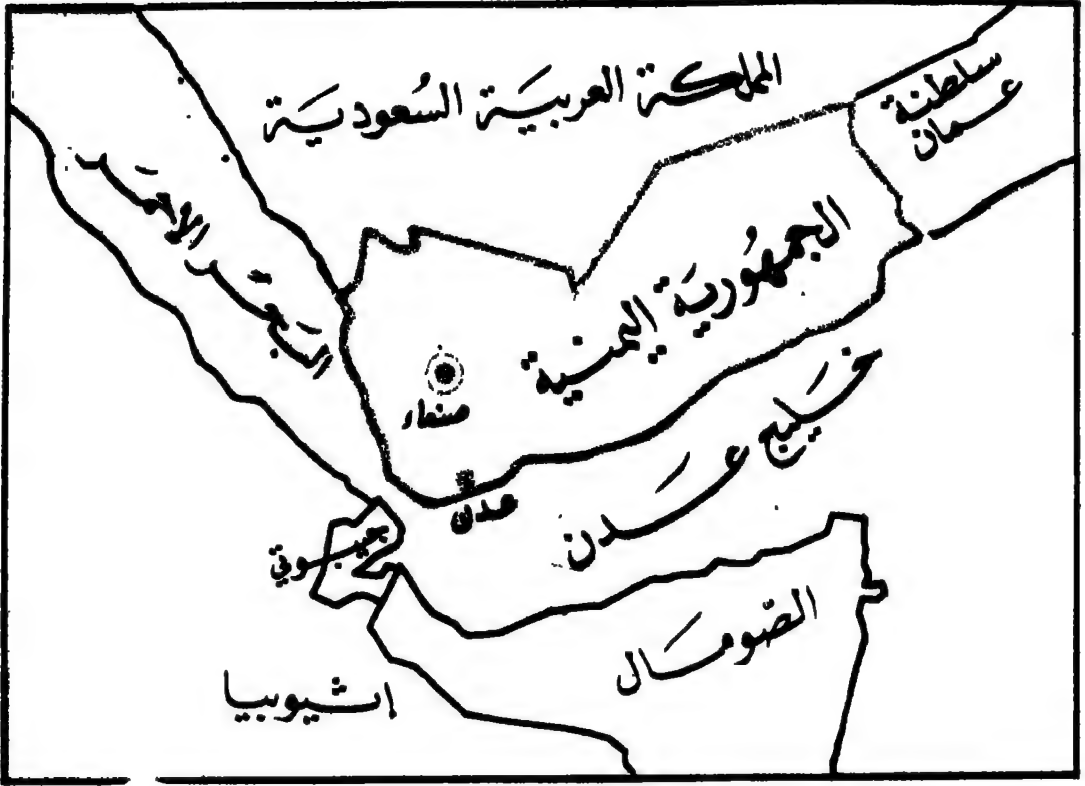 المملكة العربيَة السُعوديَة
سلطنة
عمان
البَحَر الأحمَر
الجمهُوريَة اليمنية
صنعاء
عدن
خَليج عَدن
جيبوتي
الصّومَال
إشيوبيا